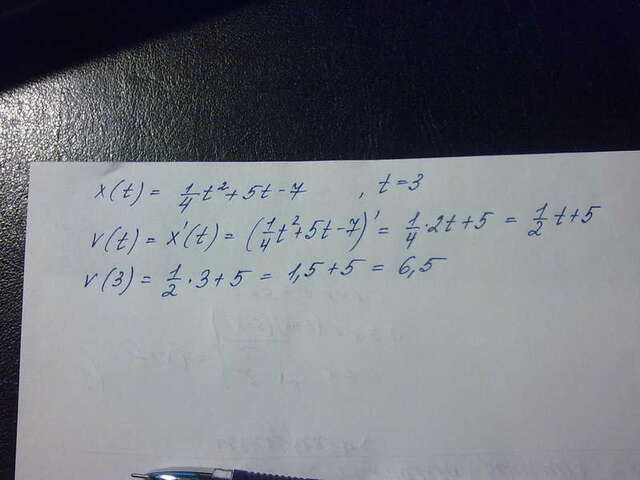 x(t) = 1/4 t² + 5t - 7 , t = 3
v(t) = x'(t) = (1/4 t² + 5t - 7)' = 1/4 · 2t + 5 = 1/2 t + 5
v(3) = 1/2 · 3 + 5 = 1,5 + 5 = 6,5